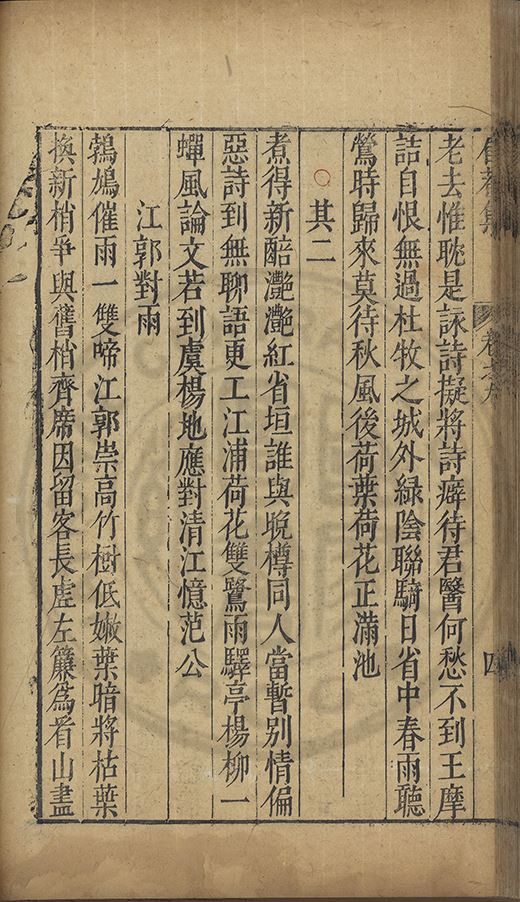 老去惟耽是詠詩擬將詩癖待君醫何愁不到王摩
詰自恨無過杜牧之城外綠陰聯騎日省中春雨聽
鶯時歸來莫待秋風後荷葉荷花正滿池
其二
煮得新醅灔灔紅省垣誰與晚樽同人當暫别情偏
惡詩到無聊語更工江浦荷花雙鷺雨驛亭楊柳一
蟬風論文若到虞楊地應對清江憶范公
江郭對雨
鵓鳩催雨一雙啼江郭崇高竹樹低嫩葉暗將枯葉
換新梢爭與舊梢齊席因留客長虛左簾爲看山盡